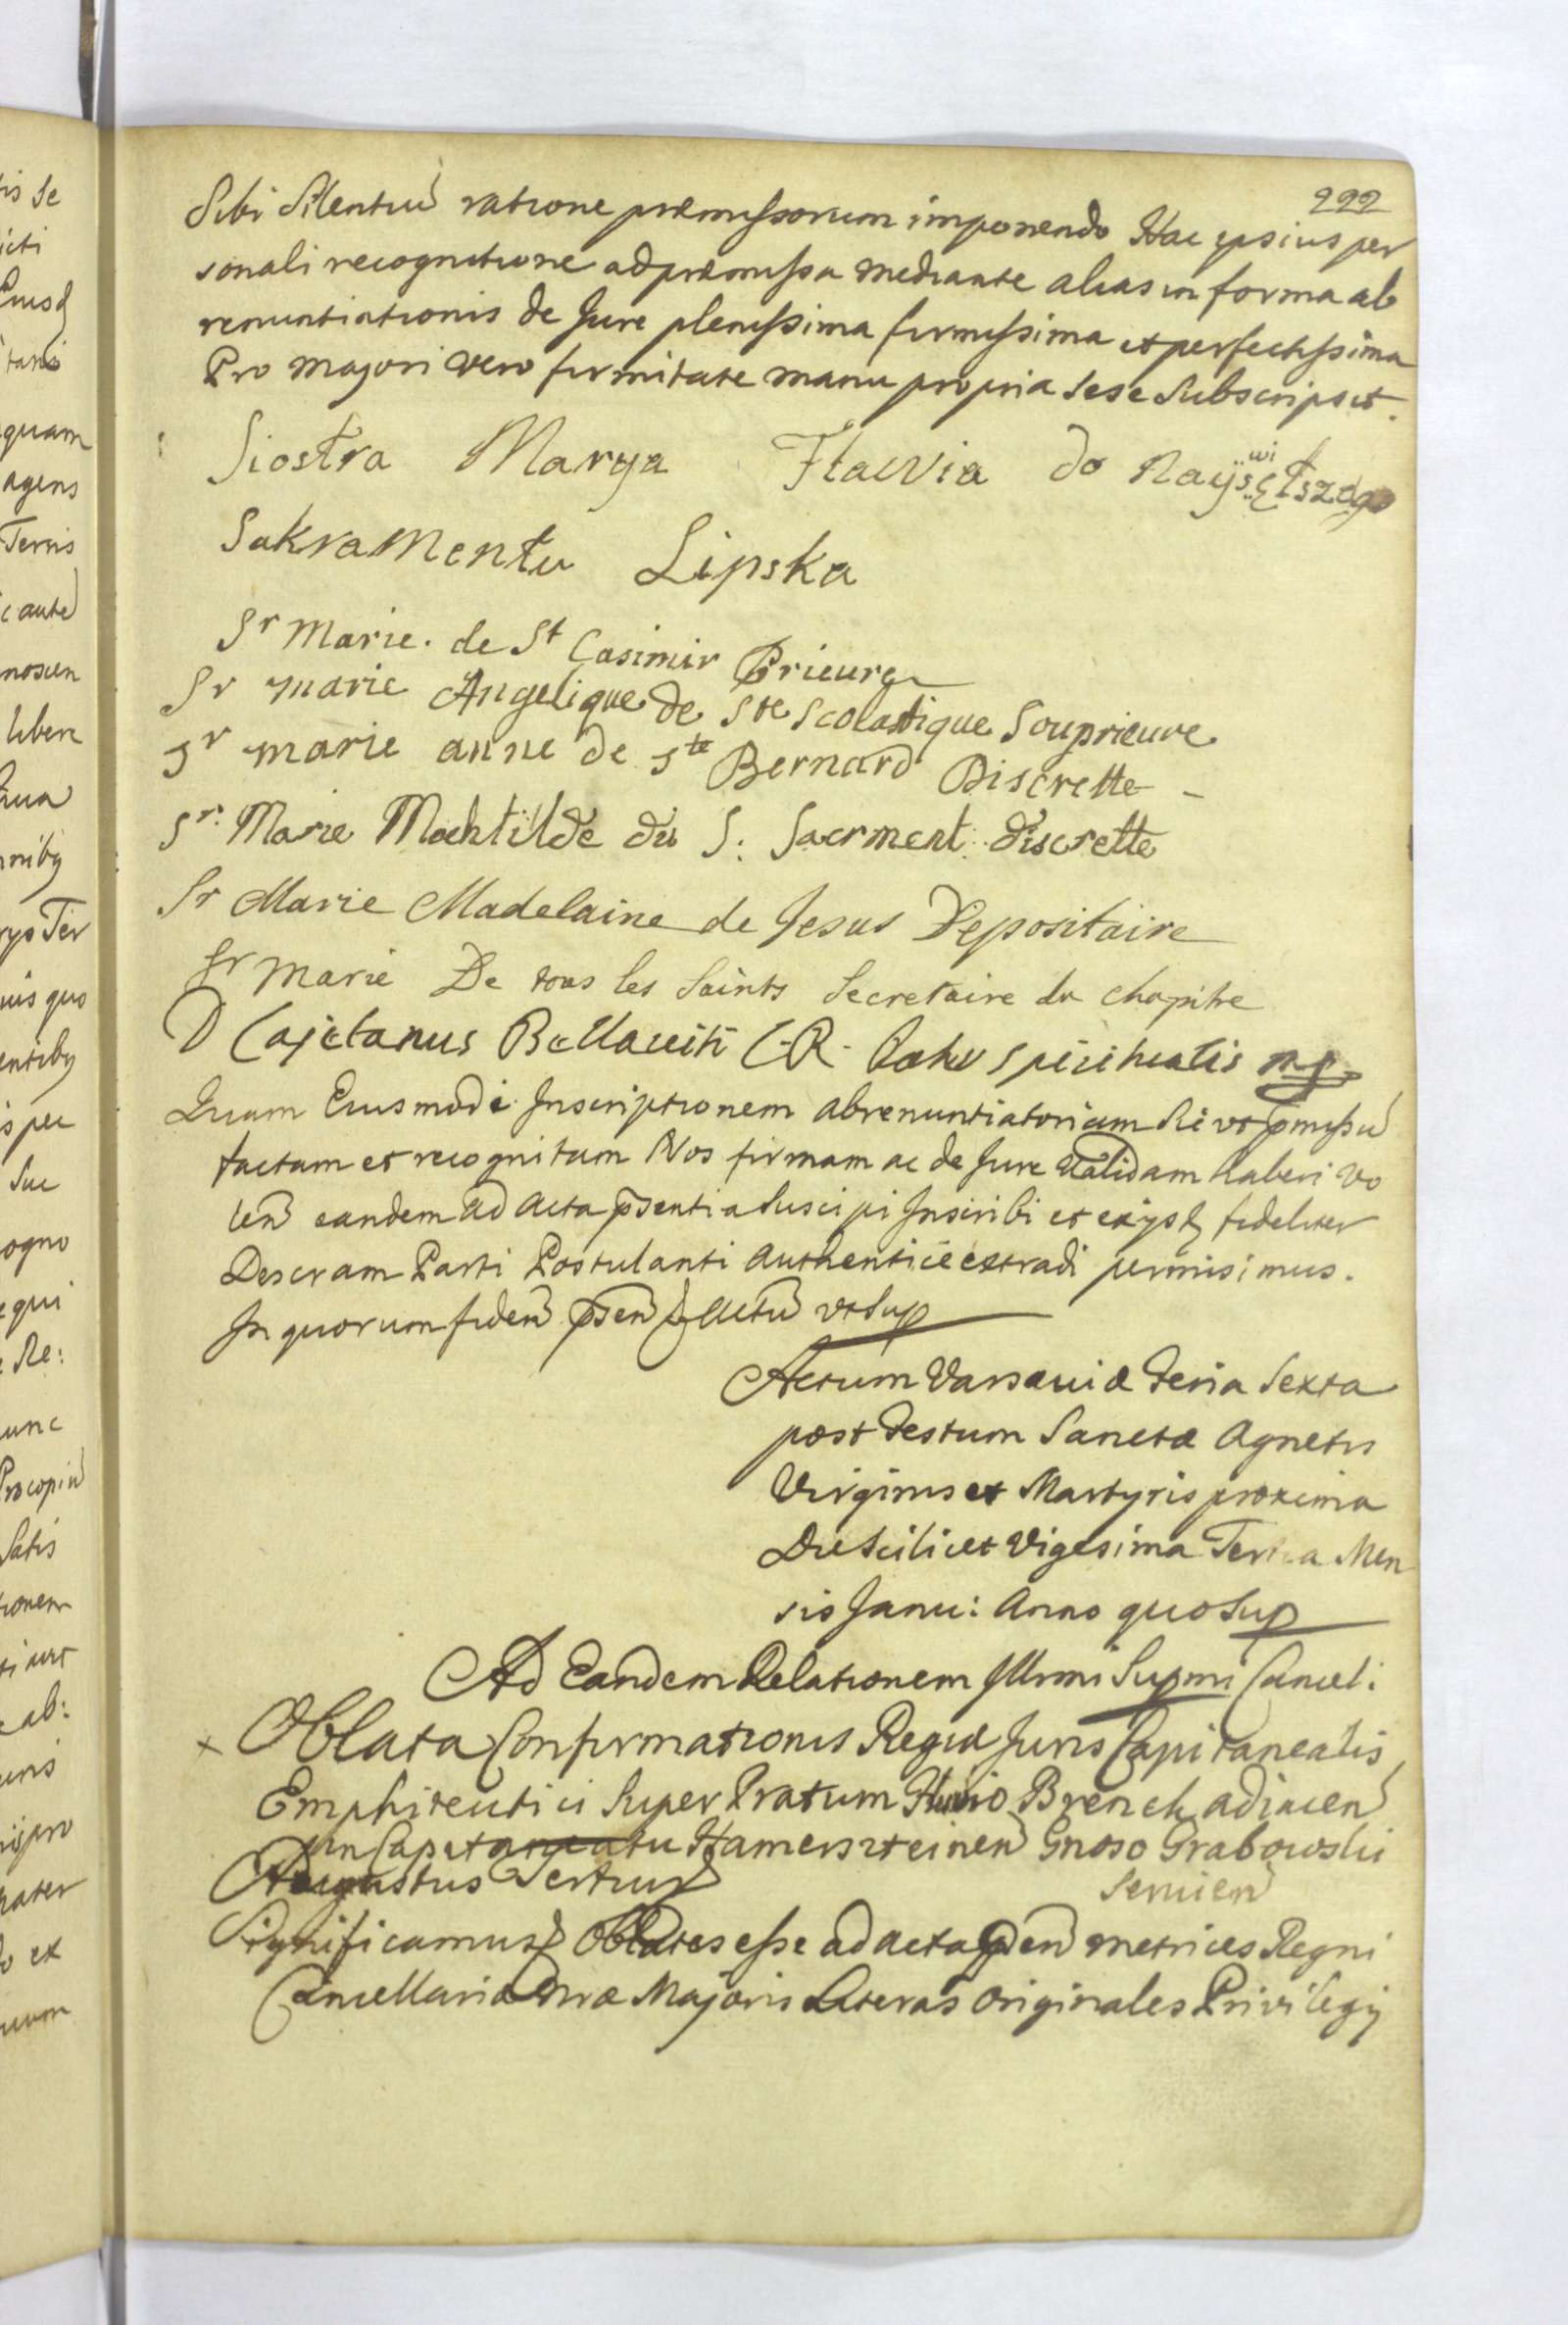 222
Sibi Silentiu ratione præmissorum imponendo Hac ipsius per
sonali recognitione ad præmissa mediante alias in forma ab
renuntiationis de Jure plenissima firmissima et perfectissima
Pro majori vero firmitate manu propria sese subscripsit.
Siostra Marya Flawia do Nayświętszego
Sakramentu Lipska
Sr Marie. de St Casimir Prieure
Sr marie Angelique de Ste Scolastique Souprieure
Sr marie anne de Ste Bernard Discrette -
Sr: Marie Mechtilde du S: Sacrment discrette
Sr Marie Madelaine de Jesus Depositaire
Sr Marie De tous les Saints Secretaire du chapitre
D Cajetanus Bellaviti C.R. mp
Quam Eiusmodi Inscriptionem abrenuntiatoriam Se vt pmissu
factam et recognitam Nos firmam ac de Jure Validam haberi vo
len eandem ad acta psentia Suscipi Inscribi et exijsd fideliter
Descram Parti Postulanti authentice extradi permisimus.
In quorum fidem psen Actu vt Sup
Actum Varsaviæ Feria Sexta
post Festum Sanctæ Agnetis
Virginis et Martyris proxima
Die Scilicet Vigesima Tertia Men
sis Janu: Anno quo Sup
Ad Eandem Relationem Illrmi Supmi Cancel:
x Oblata Confirmationis Regiæ Juris Capitanealis
Emphiteutici Super Pratum Fluvio Brenck adiacen
in Capitaneatu Hamersteinen Gnoso Grabowski
Augustus Tertius Servien
Significamus Oblatas esse ad acta pden metrices Regni
Cancellariæ Nræ Majoris Literas originales Privilegij